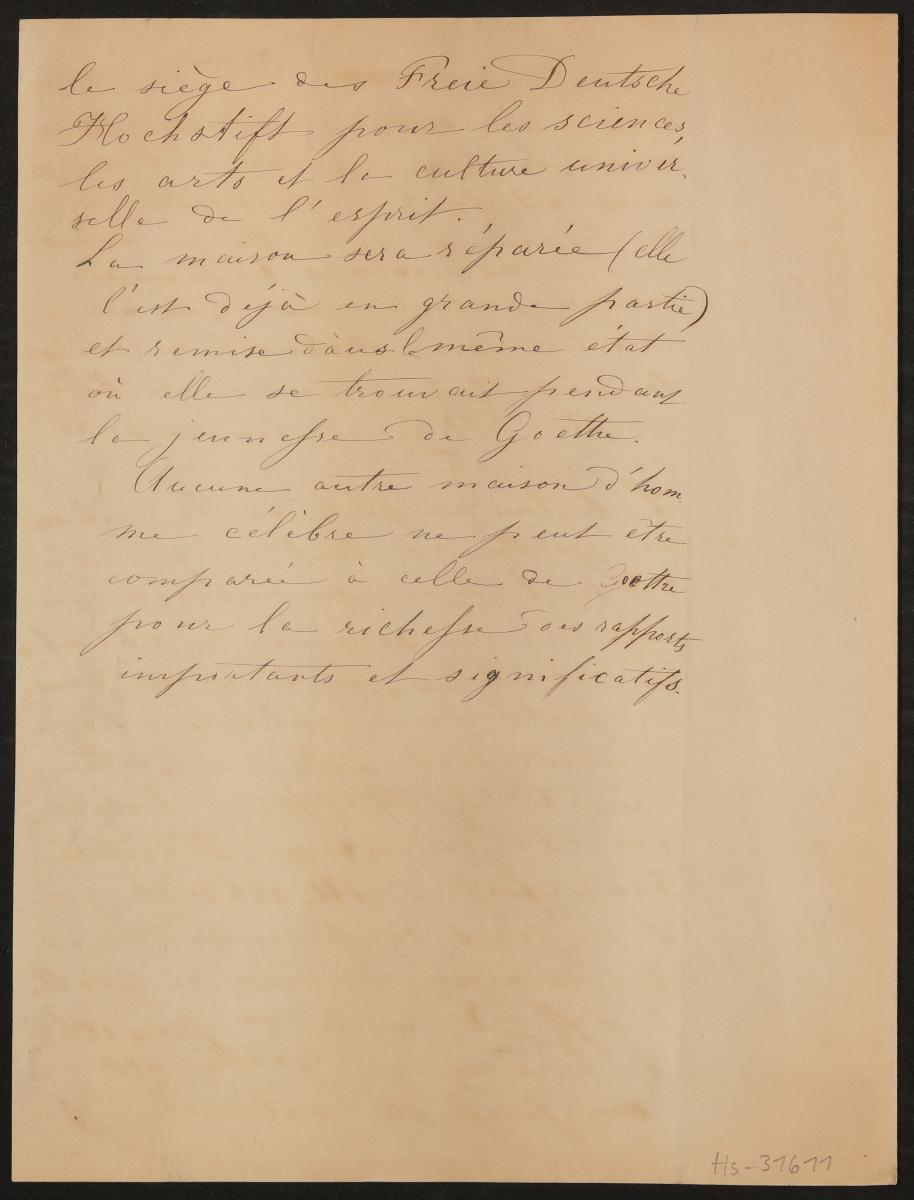 le siège des Freie Deutsche
Hochstift pour les sciences,
les arts et la culture univer-
selle de l'esprit.
La maison sera réparée (elle
l'est déjà en grande partie)
et remise dans le même état
où elle se trouvait pendant
la jeunesse de Goethe.
Aucune autre maison d'hom-
me célèbre ne peut être
comparée à celle de Goethe
pour la richesse des rapports
importants et significatifs.
Hs-31611